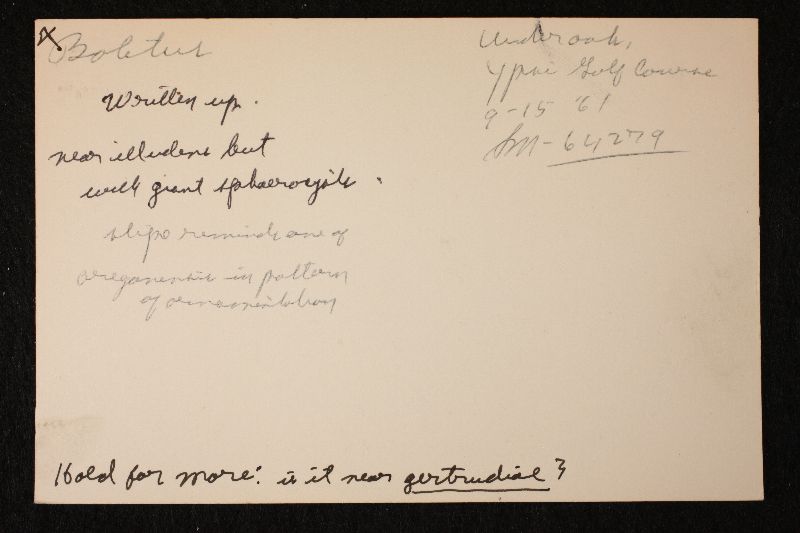 X
Boletus
Under oak,
Ypsi Golf Course
9-15 '61
Sm-64279
Written up.
near illudens but
with giant sphaerocysts.
stipe reminds one of
oregonensis in pattern
of ornamentation
Hold for more: is it near gertrudiae?